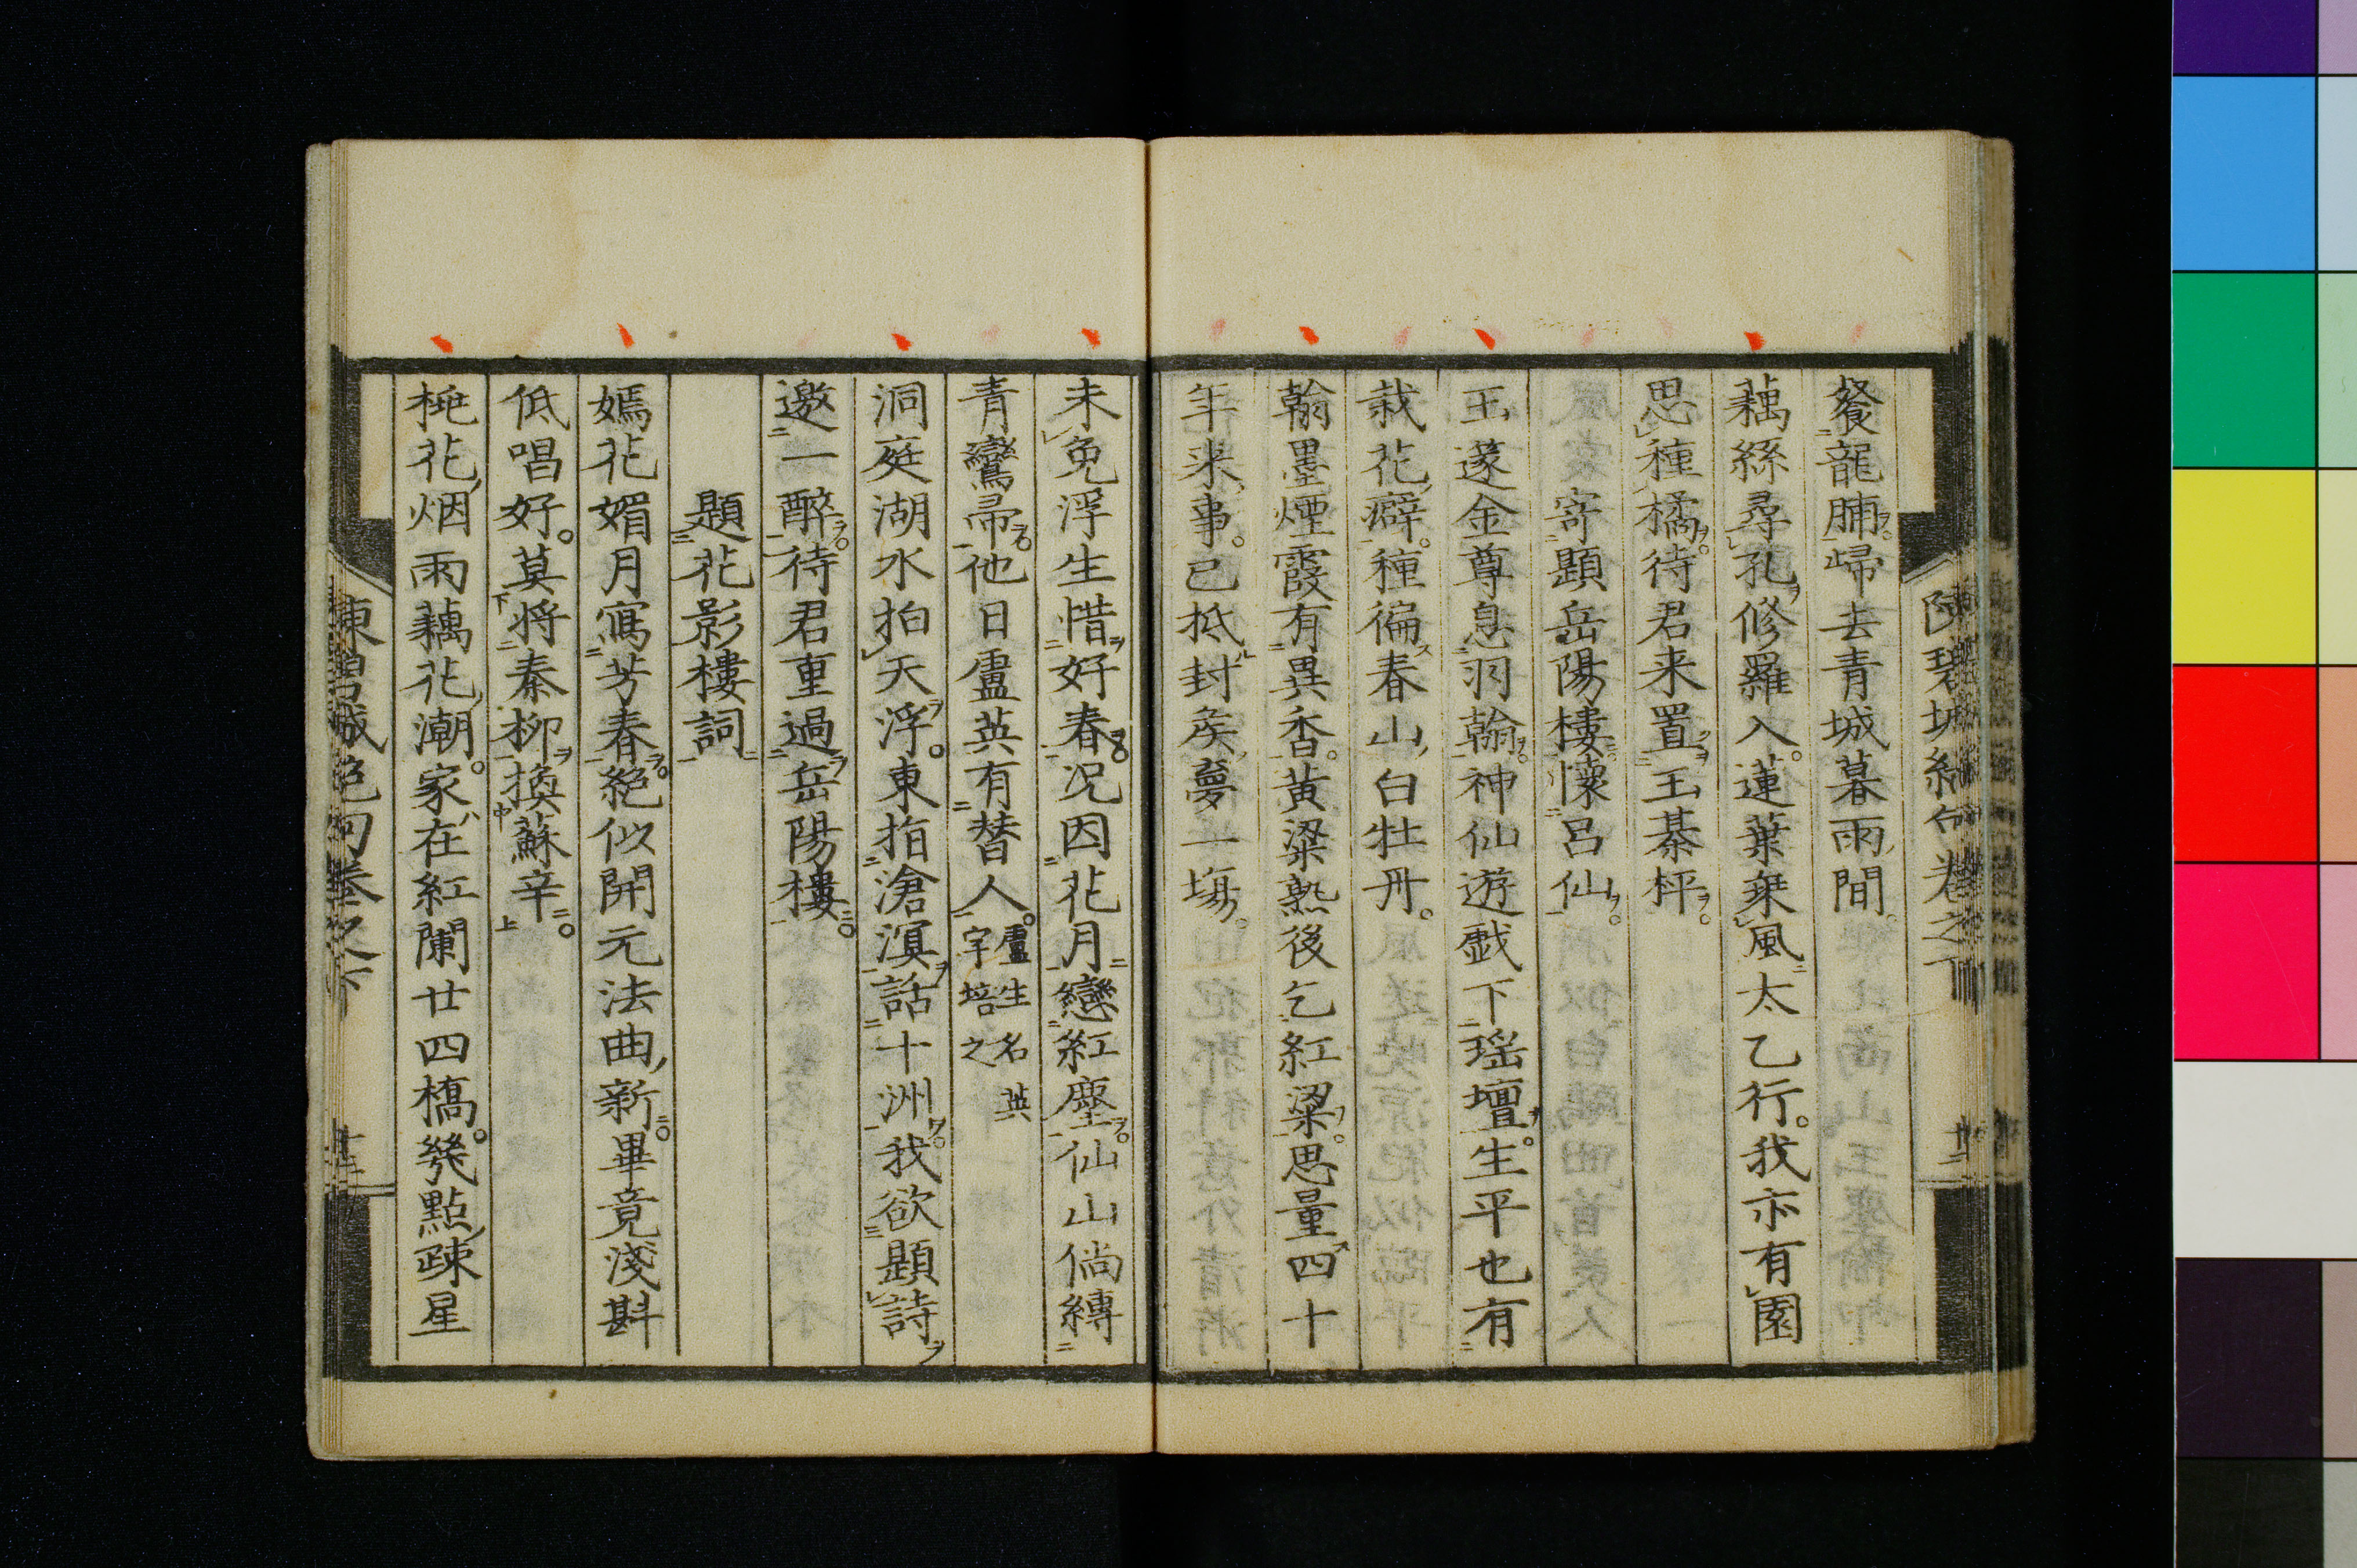 陳碧城絶句卷之下
餐龍脯歸去青城暮雨間
藕絲尋孔修羅入蓮葉乗風太乙行我亦有園
思種橘待君来置玉棊枰
寄題岳陽樓懷呂仙
玉篴金尊息羽翰神仙遊戲下瑶壇生平也有
栽花癖種徧春山白牡丹
翰墨煙霞有異香黄粱熟後乞紅粱思量四十
年来事已抵封矦夢一塲
未免浮生惜好春况因花月戀紅塵仙山倘縳
青鸞帚他日盧英有替人盧生名英字培之
洞庭湖水拍天浮東指滄溟話十洲我欲題詩
邀一醉待君重過岳陽樓
題花影樓詞
嫣花媚月寫芳春絕似開元法曲新畢竟淺斟
低唱好莫将秦柳換蘇辛
桃花烟雨藕花潮家在紅闌廿四橋幾點疎星
陳碧城絶句卷之下